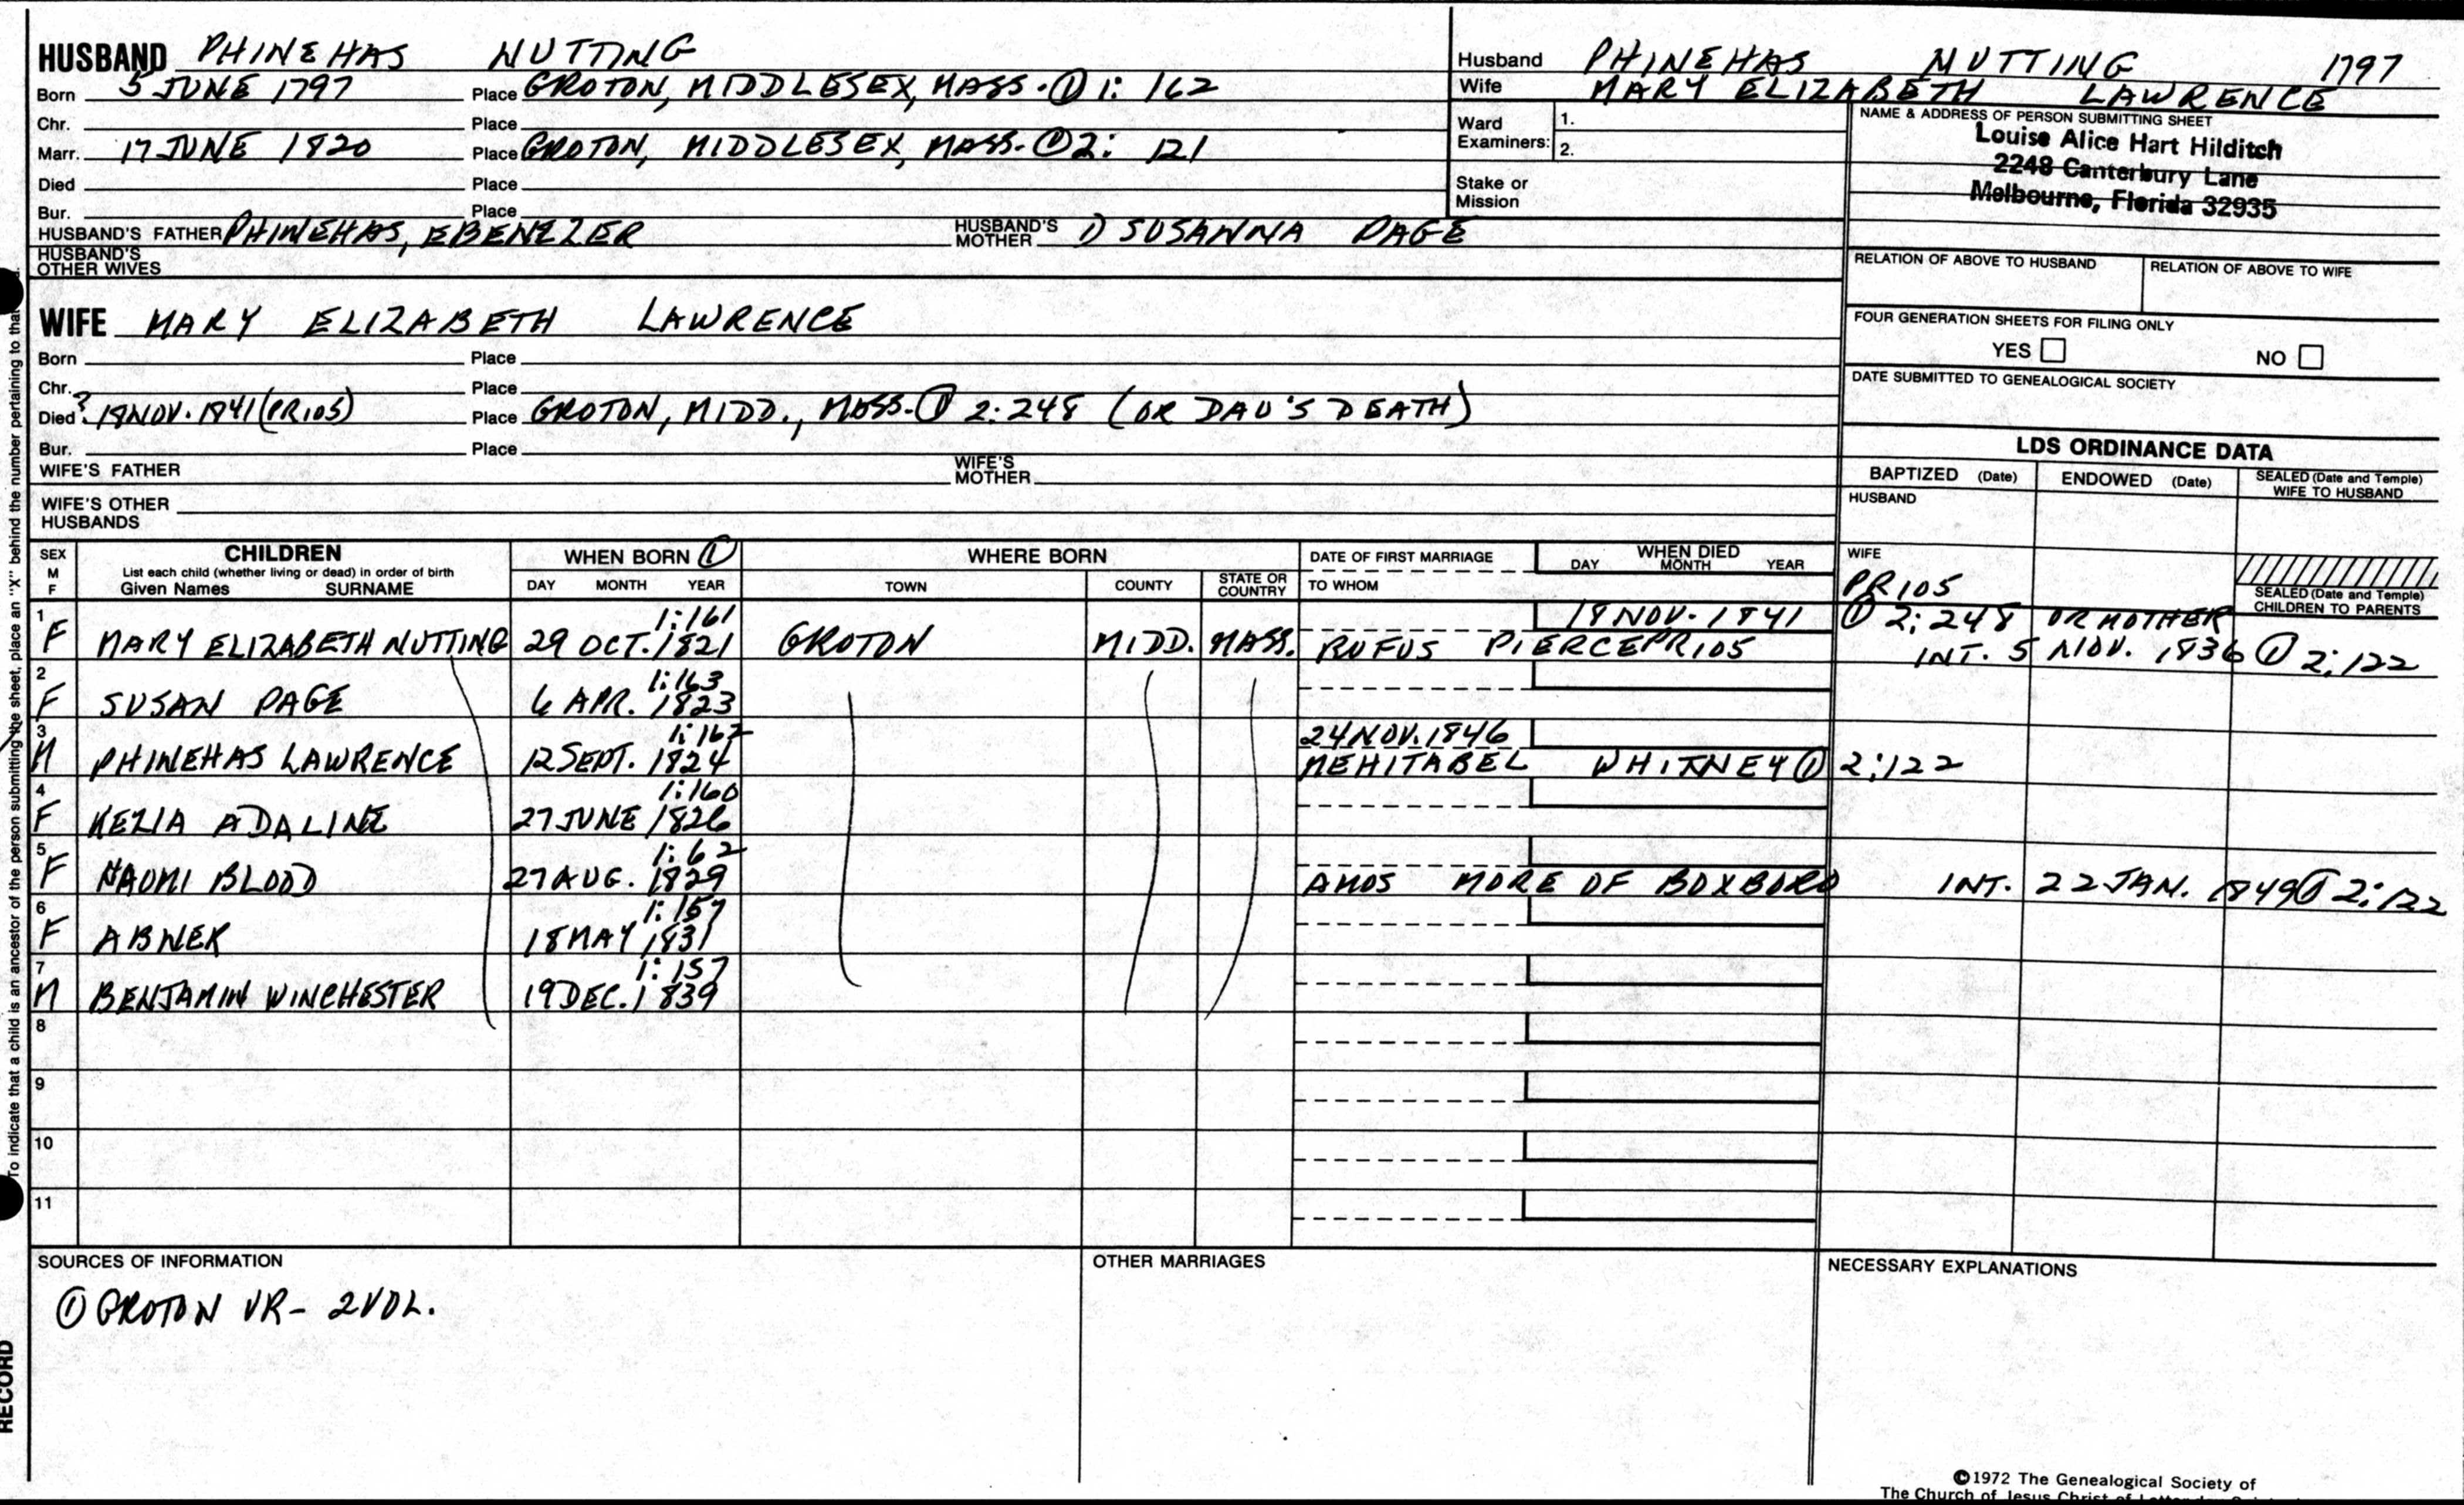 HUSBAND PHINEHAS NUTTING
Born 5 JUNE 1797 Place GROTON, MIDDLESEX, MASS. ① 1: 162
Chr. Place
Marr. 17 JUNE 1820 Place GROTON, MIDDLESEX, MASS. ① 2: 121
Died Place
Bur. Place
HUSBAND'S FATHER PHINEHAS, EBENEZER HUSBAND'S MOTHER D SUSANNA PAGE
HUSBAND'S OTHER WIVES
Husband PHINEHAS NUTTING 1797
Wife MARY ELIZABETH LAWRENCE
Ward Examiners: 1.
2.
Stake or Mission
NAME & ADDRESS OF PERSON SUBMITTING SHEET
Louise Alice Hart Hilditch
2248 Canterbury Lane
Melbourne, Florida 32935
RELATION OF ABOVE TO HUSBAND RELATION OF ABOVE TO WIFE
FOUR GENERATION SHEETS FOR FILING ONLY
YES NO
DATE SUBMITTED TO GENEALOGICAL SOCIETY
WIFE MARY ELIZABETH LAWRENCE
Born Place
Chr. Place
Died ? 18 NOV. 1841 (PR105) Place GROTON, MIDD., MASS. ① 2:248 (OR DAU'S DEATH)
Bur. Place
WIFE'S FATHER WIFE'S MOTHER
WIFE'S OTHER HUSBANDS
LDS ORDINANCE DATA
BAPTIZED (Date) ENDOWED (Date) SEALED (Date and Temple) WIFE TO HUSBAND
HUSBAND
WIFE
PR105
SEALED (Date and Temple) CHILDREN TO PARENTS
SEX M F CHILDREN WHEN BORN ① WHERE BORN DATE OF FIRST MARRIAGE WHEN DIED
List each child (whether living or dead) in order of birth
Given Names SURNAME DAY MONTH YEAR TOWN COUNTY STATE OR COUNTRY TO WHOM DAY MONTH YEAR
1 1:161 18 NOV. 1841 ① 2:248 OR MOTHER
F MARY ELIZABETH NUTTING 29 OCT. 1821 GROTON MIDD. MASS. RUFUS PIERCE PR105 INT. 5 NOV. 1836 ① 2:122
2 1:163
F SUSAN PAGE 6 APR. 1823
3 1:162 24 NOV. 1846
M PHINEHAS LAWRENCE 12 SEPT. 1824 MEHITABEL WHITNEY ① 2:122
4 1:160
F KEZIA ADALINE 27 JUNE 1826
5 1:62
F NAOMI BLOOD 27 AUG. 1829 AMOS MORE OF BOXBORO INT. 22 JAN. 1849 ① 2:122
6 1:157
F ABNER 18 MAY 1831
7 1:157
M BENJAMIN WINCHESTER 19 DEC. 1839
8
9
10
11
SOURCES OF INFORMATION OTHER MARRIAGES NECESSARY EXPLANATIONS
① GROTON VR- 2 VOL.
©1972 The Genealogical Society of
The Church of Jesus Christ of
To indicate that a child is an ancestor of the person submitting the sheet, place an "X" behind the number pertaining to that
RECORD